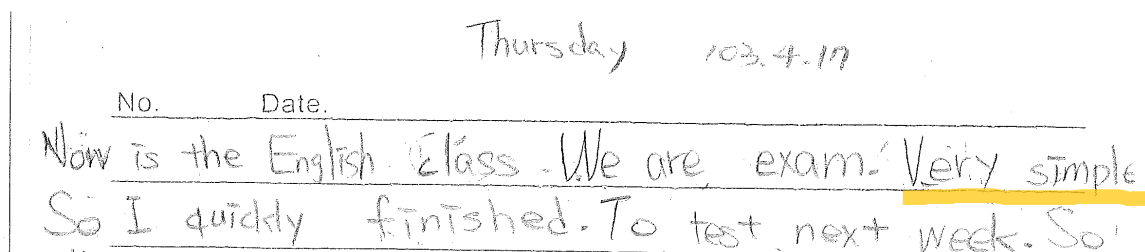 Thursday 103.4.17
No. Date.
Now is the English class. We are exam. Very simple
So I quickly finished. To test next week. So